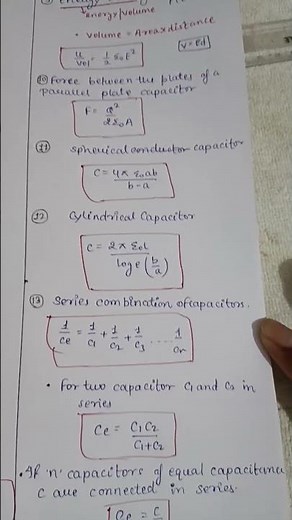 energy/volume
• volume = Area x distance
u/vol = 1/2 ε₀E²
V = Ed
⑩ Force between the plates of a
parallel plate capacitor
F = Q²/2ε₀A
⑪ Spherical conductor capacitor
C = 4π ε₀ab/b-a
⑫ Cylindrical Capacitor
C = 2π ε₀L/log e (b/a)
⑬ Series combination of capacitors.
1/Ce = 1/C₁ + 1/C₂ + 1/C₃ ..... 1/Cn
• For two capacitor C₁ and C₂ in
series
Ce = C₁C₂/C₁+C₂
• If 'n' capacitors of equal capacitance
C are connected in series.
Ce = C